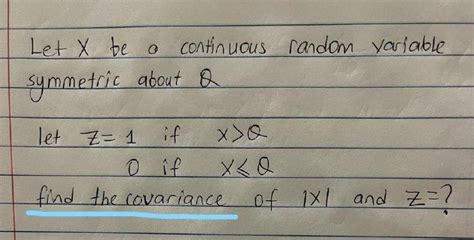 Let X be a continuous random variable
symmetric about Q
let Z= 1 if x>Q
0 if x≤Q
find the covariance of |X| and Z=?